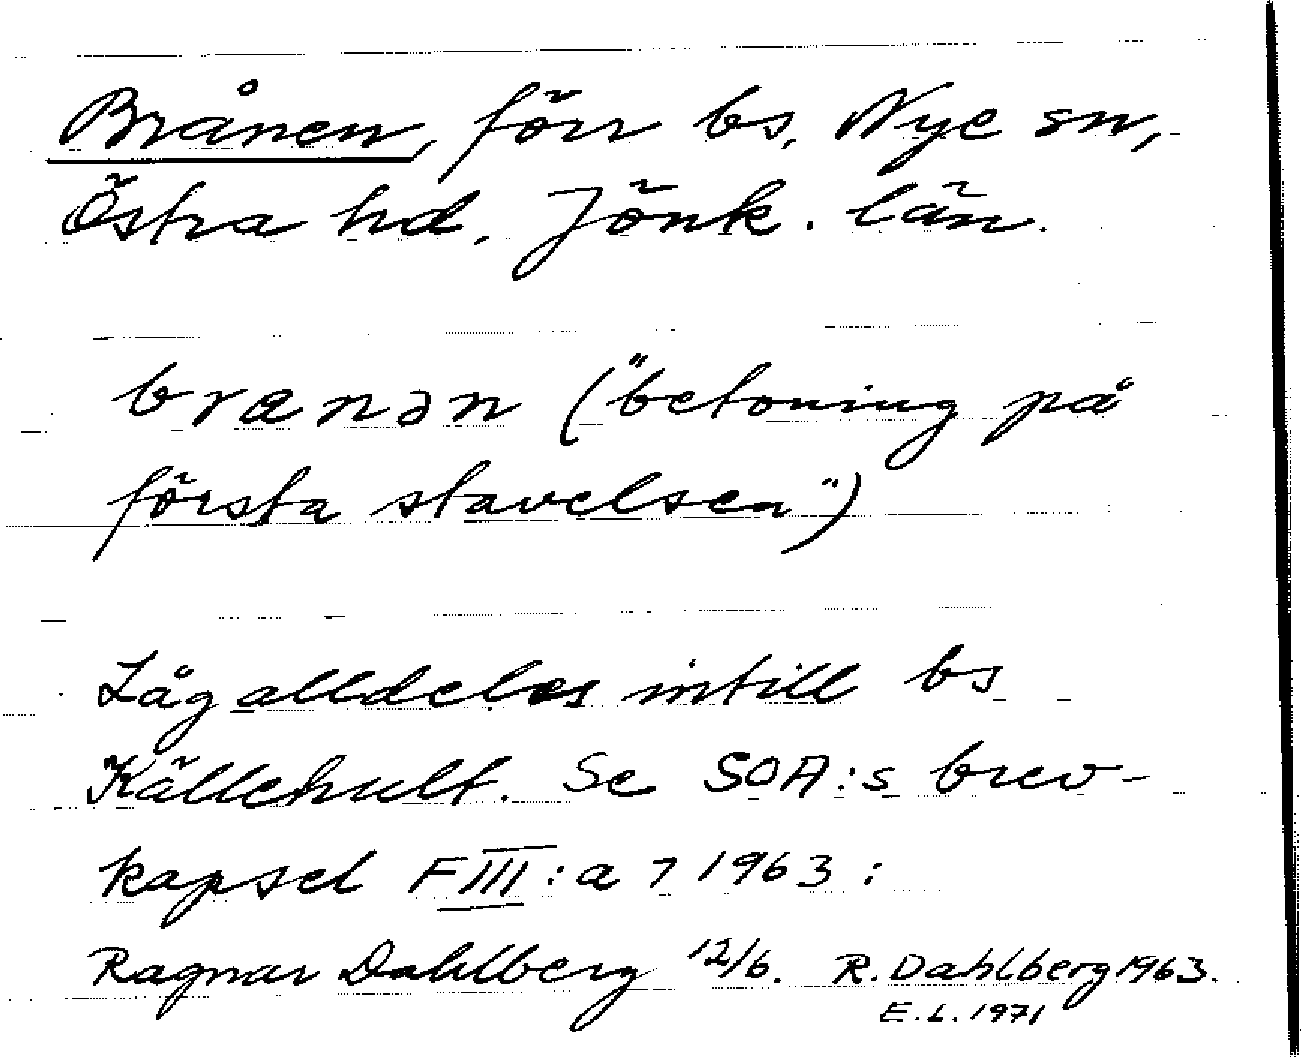 Brånen, förr bs, Nye sn,
Östra hd, Jönk. län.
brananən ("betoning på
första stavelsen")
Låg alldeles intill bs
Källehult. Se SOA:s brev-
kapsel FIII:a 7 1963:
Ragnar Dahlberg 12/6. R. Dahlberg 1963.
E.L. 1971